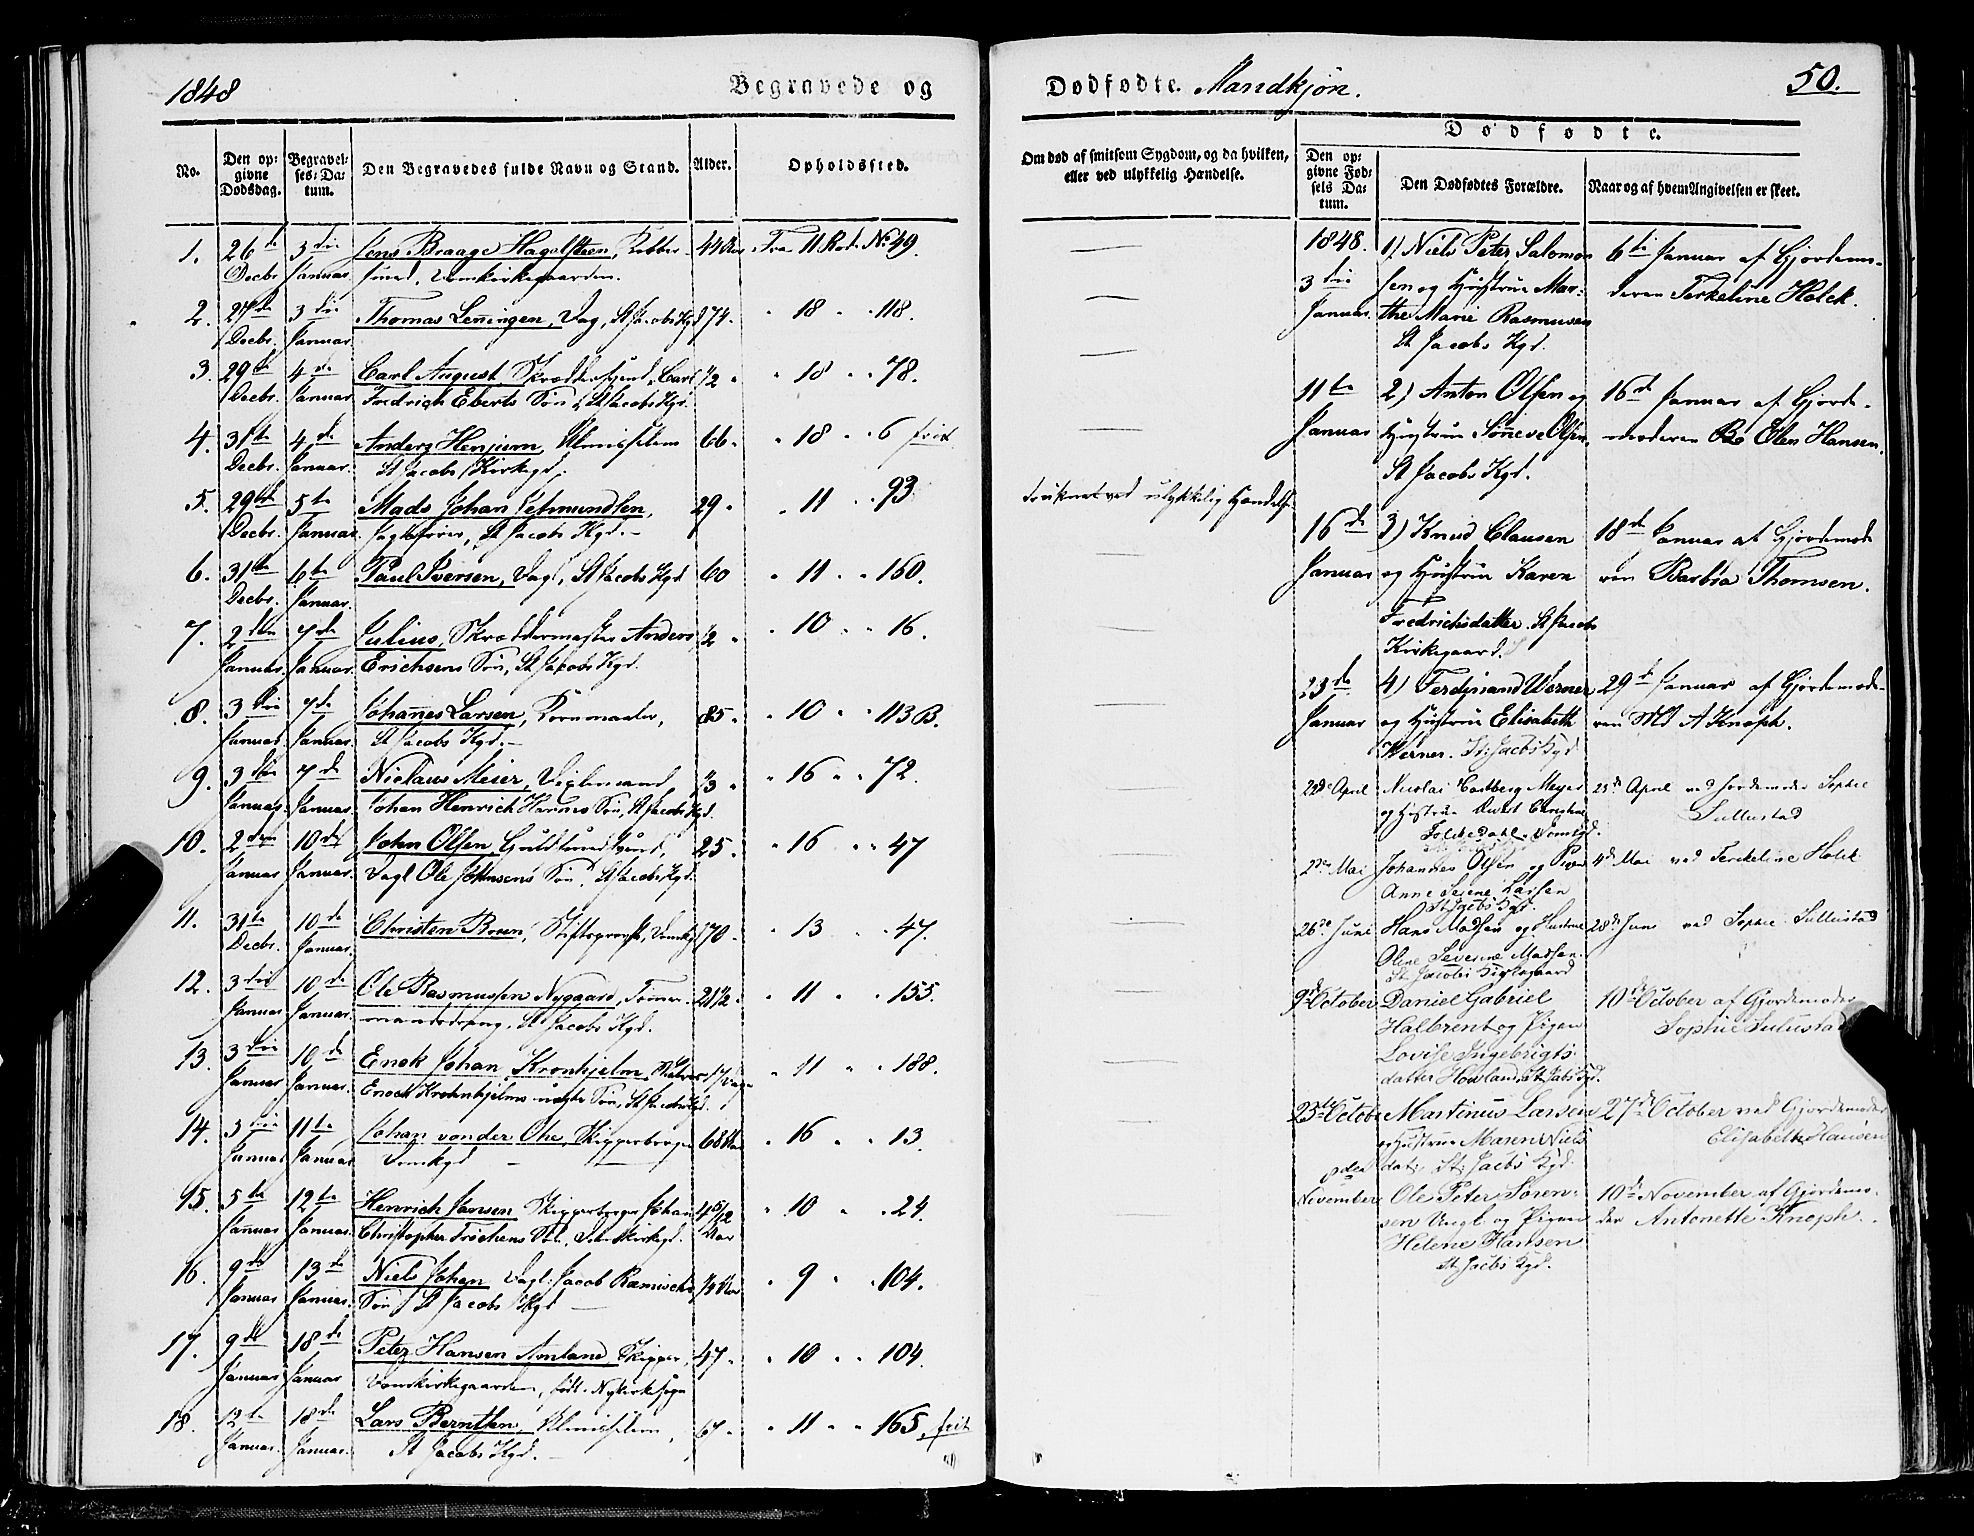 1848
Begravede og
No.
Den opgivne Dødsdag.
Begravelses-Datum.
Den Begravedes fulde Navn og Stand.
Alder.
Opholdssted.
1. 26de 3die Jens Braage Hagelsteen, 44 Aar Fra 11 Rod. No 49.
Decbr. Januar svend, Domkirkegaarden.
2. 27de 3die Thomas Lenningen, Dag, St Jacobs Kgd 74. " 18 " " 118.
Decbr. Januar
3. 29de 4de Carl August, Skrædersvend, Carl 1/2 " " 18 " " 78.
Decbr. Januar Fredrich Eberts Søn, St Jacobs Kgd.
4. 31te 4de Anders Henjum, Almisselem 66. " 18 " " 6 frit
Decbr. Januar. St Jacobs Kirkegd.
5. 29de 5te Mads Johan Setmundsen, 29. " 11 " " 93.
Decbr. Januar. St Jacobs Kgd.
6. 31te 6te Paul Iversen, Dagl, St Jacobs Kgd 60 " 11 " " 160.
Decbr. Januar.
7. 2den 7de Julius, Skræddermester Anders 1/2 " " 10 " " 16.
Januar. Januar. Erichsens Søn, St Jacobs Kgd.
8. 3die 7de Johannes Larsen, Kornmaaler, 85. " 10 " " 113 B.
Januar. Januar. St Jacobs Kgd.
9. 3die 7de Niclaus Meier, 1/3 " " 16 " " 72.
Januar. Januar. Johan Henrich Harmes Søn, St Jacobs Kgd.
10. 2den 10de John Olsen, Guldsmedsvend, 25. " 16 " " 47
Januar Januar. Dagl Ole Johnsens Søn, St Jacobs Kgd.
11. 31te 10de Christen Brun, Stiftsprovst, Domkgd 70. " 13 " 47.
Decbr. Januar.
12. 3die 10de Ole Rasmussen Nygaard, Tømmer- 21 1/2 " " 11 " " 155.
Januar Januar. mandsdreng, St Jacobs Kgd.
13. 3die 10de Enok Johan Kronhjelm, 17 Dage " 11 " " 188.
Januar Januar. Enock Kronhjelms uægte Søn, St Jacobs Kgd.
14. 3die 11te Johan von der Ohe, Skipperborger 68 Aar " 16 " " 13.
Januar Januar Domkgd
15. 5te 12te Henrich Jansen Skipperborger Johan 4 5/12 " 10 " " 24.
Januar Januar. Christopher Søn, Domkirkegd. Aar
16. 9de 13de Niels Johan Dagl: Jacob Søn St Jacobs Kgd " 9 " " 104.
Januar Januar.
17. 9de 18de Peter Hansen Amland Skipper, 47. " 10 " " 104.
Januar Januar Domkirkegaarden, født i Nykirkesogn
18. 12te 18de Lars Berntsen, Almisselem, 67. " 11 " " 165, frit
Januar. Januar. St Jacobs Kgd.
Dødfødte. Mandkjøn.
50.
Om død af smitsom Sygdom, og da hvilken, eller ved ulykkelig Hændelse.
Dødfødte.
Den opgivne Fødsels Datum.
Den Dødfødtes Forældre.
Naar og af hvem Angivelsen er skeet.
druknet ved ulykkelig Hændelse
1848. 1) Niels Peter Salomon- 6te Januar af Gjordemo-
3die sen og Hustrue Mar- deren Terkeline Holck.
Januar. the Marie Rasmusen
St Jacobs Kgd.
11te 2) Anton Olsen og 16de Januar af Gjorde-
Januar Hustrue Sønneve Olsen, moderen Elen Hansen.
St Jacobs Kgd.
16de 3) Knud Clausen 18de Januar af Gjordemode
Januar og Hustrue Karen ren Barbra Thomsen.
Fredrichsdatter. St Jacobs
Kirkegaard.
23de 4) Ferdinand Werner 29de Januar af Gjordemode-
Januar og Hustrue Elisabeth ren Md A Knoph.
Werner. St: Jacobs Kgd
22de April Nicolai Castberg Meyer 25de April ved Jordemoder Sophie
og Hustrue Sullustad
Folkedahl. Domkgd.
2den Mai Johannes Olsen og 4de Mai ved Terkeline Holck
Anne Serene Larsen
St Jacobs Kgd.
26de Juni Hans Madsen og Hustrue 28de Juni ved Sophie Sullustad
Oline Severine Madsen.
St Jacobs Kirkegaard
9de October Daniel Gabriel 10de October af Gjordemoder
Halbrent og Pigen Sophie Sulustad
Lovise Ingebrigts-
datter Howland. St Jacobs Kgd.
25de Octobr Martinus Larsen 27de October ved Gjordemoder
og Hustrue Maren Niels Elisabeth Hansen
dat: St: Jacobs Kgd.
November Ole Peter Søren- 10de November af Gjordemo-
sen Ungk. og Pigen der Antonette Knoph.
Helene Hansen
St Jacobs Kgd.